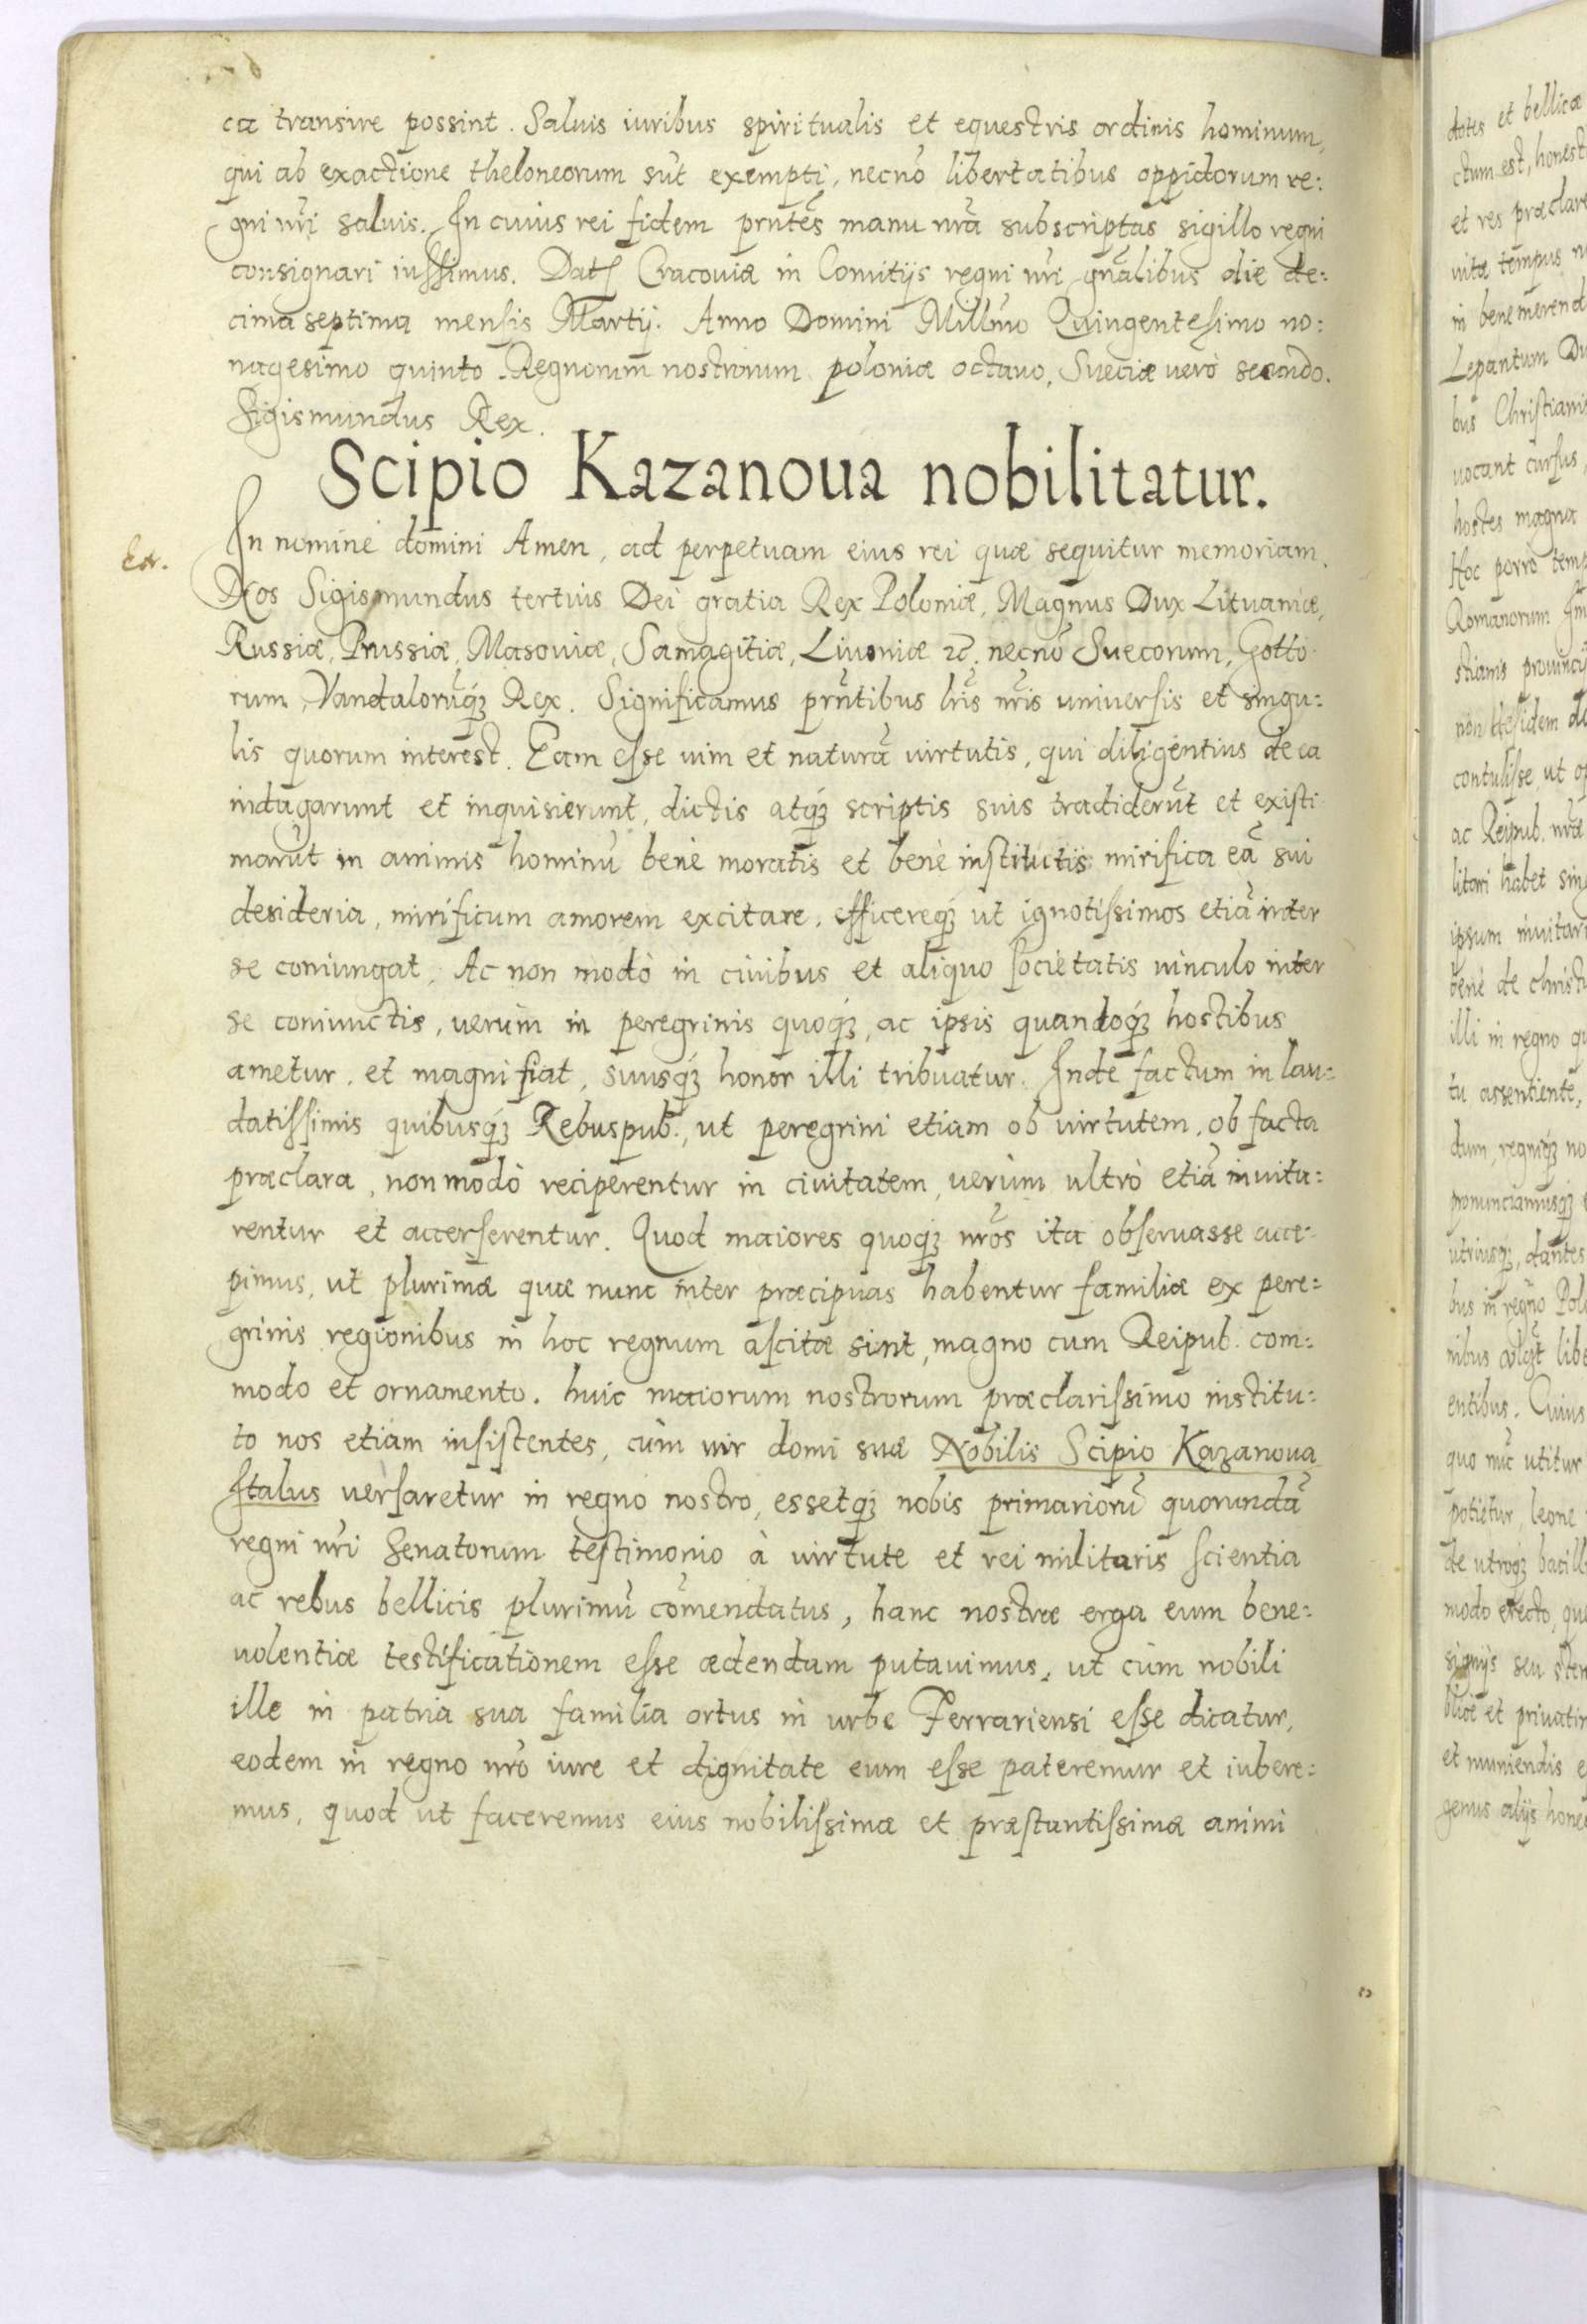 ca transire possint. Saluis iuribus spiritualis et equestris ordinis hominum,
qui ab exactione theloneorum sūt exempti, necnō libertatibus oppidorum re:
gni nr̄i saluis. In cuius rei fidem prntēs manu nrā subscriptas sigillo regni
consignari iussimus. Dat Cracouiæ in Comitijs regni nr̄i gnālibus die de:
cima septima mensis Martij. Anno Domini Millmo Quingentesimo no:
nagesimo quinto. Regnorum nostrorum poloniæ octauo, Sueciæ verò secundo.
Sigismundus Rex.
Scipio Kazanoua nobilitatur.
In nomine domini Amen, ad perpetuam eius rei quæ sequitur memoriam.
Nos Sigismundus tertius Dei gratia Rex Poloniæ, Magnus Dux Lituaniæ,
Russiæ, Prussiæ, Masouiæ, Samagitiæ, Liuoniæ zc̄. necnō Suecorum, Gotto
rum, Vandalorūq́ꝫ Rex. Significamus prn̄tibus lr̄is nr̄is uniuersis et singu:
lis quorum interest. Eam esse uim et naturā virtutis, qui diligentius de ea
indagarunt et inquisierunt, dictis atq́ꝫ scriptis suis tradiderūt et existi
marūt in animis hominū benè moratis et benè institutis mirifica eā sui
desideria, mirificum amorem excitare, efficereq́ꝫ ut ignotissimos etiā inter
se coniungat. Ac non modò in ciuibus et aliquo societatis uinculo inter
se coniunctis, uerùm in peregrinis quoq́ꝫ, ac ipsis quandoq́ꝫ hostibus
ametur, et magni fiat, suusq́ꝫ honor illi tribuatur. Inde factum in lau:
datissimis quibusq́ꝫ Rebuspub., ut peregrini etiam ob uirtutem, ob facta
præclara, non modò reciperentur in ciuitatem, uerùm ultrò etiā inuita:
rentur et accerserentur. Quod maiores quoq́ꝫ nrōs ita obseruasse acce:
pimus, ut plurimæ quæ nunc inter præcipuas habentur familiæ ex pere:
grinis regionibus in hoc regnum ascitæ sint, magno cum Reipub. com:
modo et ornamento. huic maiorum nostrorum præclarissimo institu:
to nos etiam insistentes, cùm uir domi suæ Nobilis Scipio Kazanoua
Italus uersaretur in regno nostro, essetq́ꝫ nobis primariorū quorundā
regni nr̄i Senatorum testimonio à uirtute et rei militaris scientia
ac rebus bellicis plurimū cōmendatus, hanc nostræ erga eum bene:
uolentiæ testificationem esse ædendam putauimus, ut cùm nobili
ille in patria sua familia ortus in urbe Ferrariensi esse dicatur,
eodem in regno nrō iure et dignitate eum esse pateremur et iubere:
mus, quod ut faceremus eius nobilissimæ et præstantissimæ animi
dotes et bellicæ
ctum est, honest
et res præclare
uitæ tempus
in bene merend
Lepantum Du
bus Christiani
uocant cursus,
hostes magna
Hoc porro temp
Romanorum Im
stianis prouincij
non
contulisse, ut
ac Reipub. nræ
litari habet sing
ipsum inuitar
benè de christi
illi in regno
tu assentiente,
dum, regniq́ꝫ no
pronunciamusq́ꝫ
utriusq́ꝫ, dantes
bus in regno Pol
entibus. Cuius
quo nūc utitur
potietur, leone
de utroq́ꝫ bacill
modo erecto, que
signijs seu stem
blicè et priuatim
et muniendis e
genus alijs hone